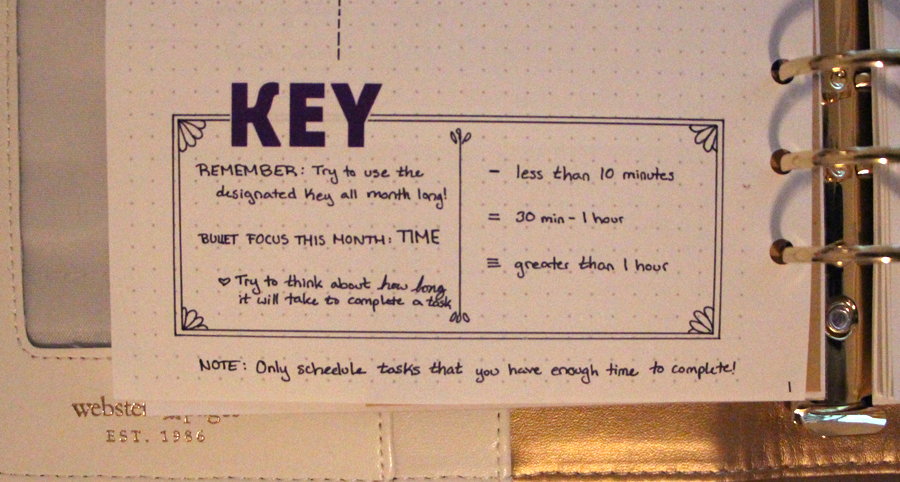 KEY
REMEMBER: Try to use the
designated key all month long!
BULLET FOCUS THIS MONTH: TIME
♡ Try to think about how long
it will take to complete a task
- less than 10 minutes
= 30 min - 1 hour
≡ greater than 1 hour
NOTE: Only schedule tasks that you have enough time to complete!
1
EST. 1986